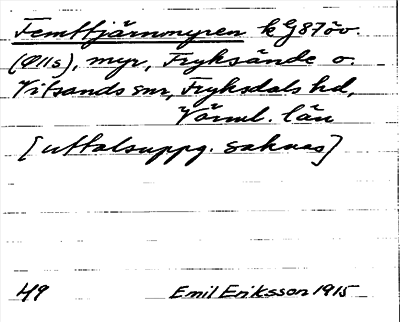 Femttjärnmyren k G87öv.
(Ölls), myr, Fryksände o.
Vitsands snr, Fryksdals hd,
Värml. län
[uttalsuppg. saknas]
49 Emil Eriksson 1915